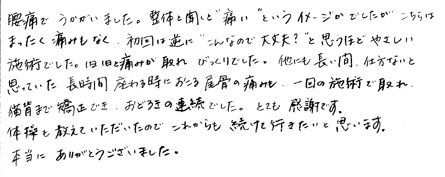 腰痛で うかがいました。整体と聞くと"痛い"というイメージがでしたが こちらは
まったく痛みもなく、初回は逆に"こんなので大丈夫?"と思うほど やさしい
施術でした。日に日と痛みが取れ びっくりでした。他にも長い間、仕方ないと
思っていた 長時間 座わる時におこる尾骨の痛みも、一回の施術で取れ、
猫背まで矯正でき、おどろきの連続でした。とても 感謝です。
体操も教えていただいたので これからも 続けて行きたいと思います。
本当に ありがとうございました。